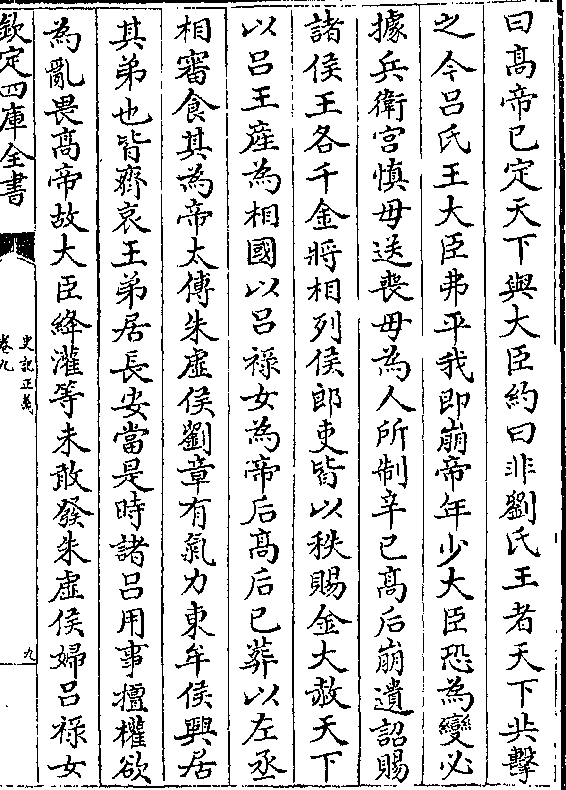 曰髙帝已定天下與大臣約曰非劉氏王者天下共擊
之今呂氏王大臣弗平我即崩帝年少大臣恐為變必
據兵衛宫慎毋送喪毋為人所制辛巳髙后崩遺詔賜
諸侯王各千金將相列侯郎吏皆以秩賜金大赦天下
以呂王産為相國以呂祿女為帝后髙后已葬以左丞
相審食其為帝太傅朱虛侯劉章有氣力東牟侯興居
其弟也皆齊哀王弟居長安當是時諸呂用事擅權欲
為亂畏髙帝故大臣絳灌等未敢發朱虛侯婦呂祿女
欽定四庫全書
史記正義
卷九
九